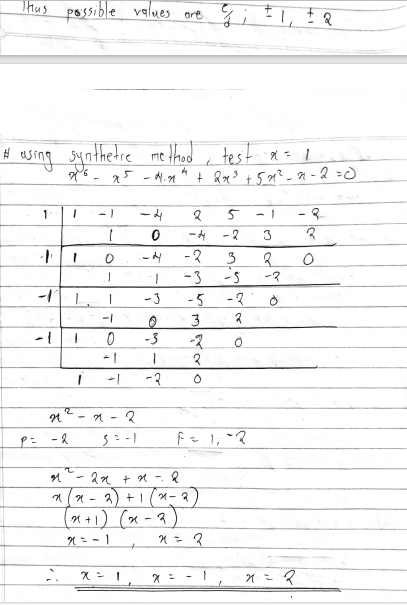 Thus possible values are c/d ; ± 1, ± 2
# using synthetic method, test x = 1
x⁶ - x⁵ - 4x⁴ + 2x³ + 5x² - x - 2 = 0
1 | 1 -1 -4 2 5 -1 -2
1 0 -4 -2 3 2
1 | 1 0 -4 -2 3 2 0
1 1 -3 -5 -2
-1 | 1 1 -3 -5 -2 0
-1 0 3 2
-1 | 1 0 -3 -2 0
-1 1 2
1 -1 -2 0
x² - x - 2
P = -2 S = -1 F = 1, -2
x² - 2x + x - 2
x(x - 2) + 1(x - 2)
(x + 1) (x - 2)
x = -1 , x = 2
∴ x = 1, x = -1, x = 2